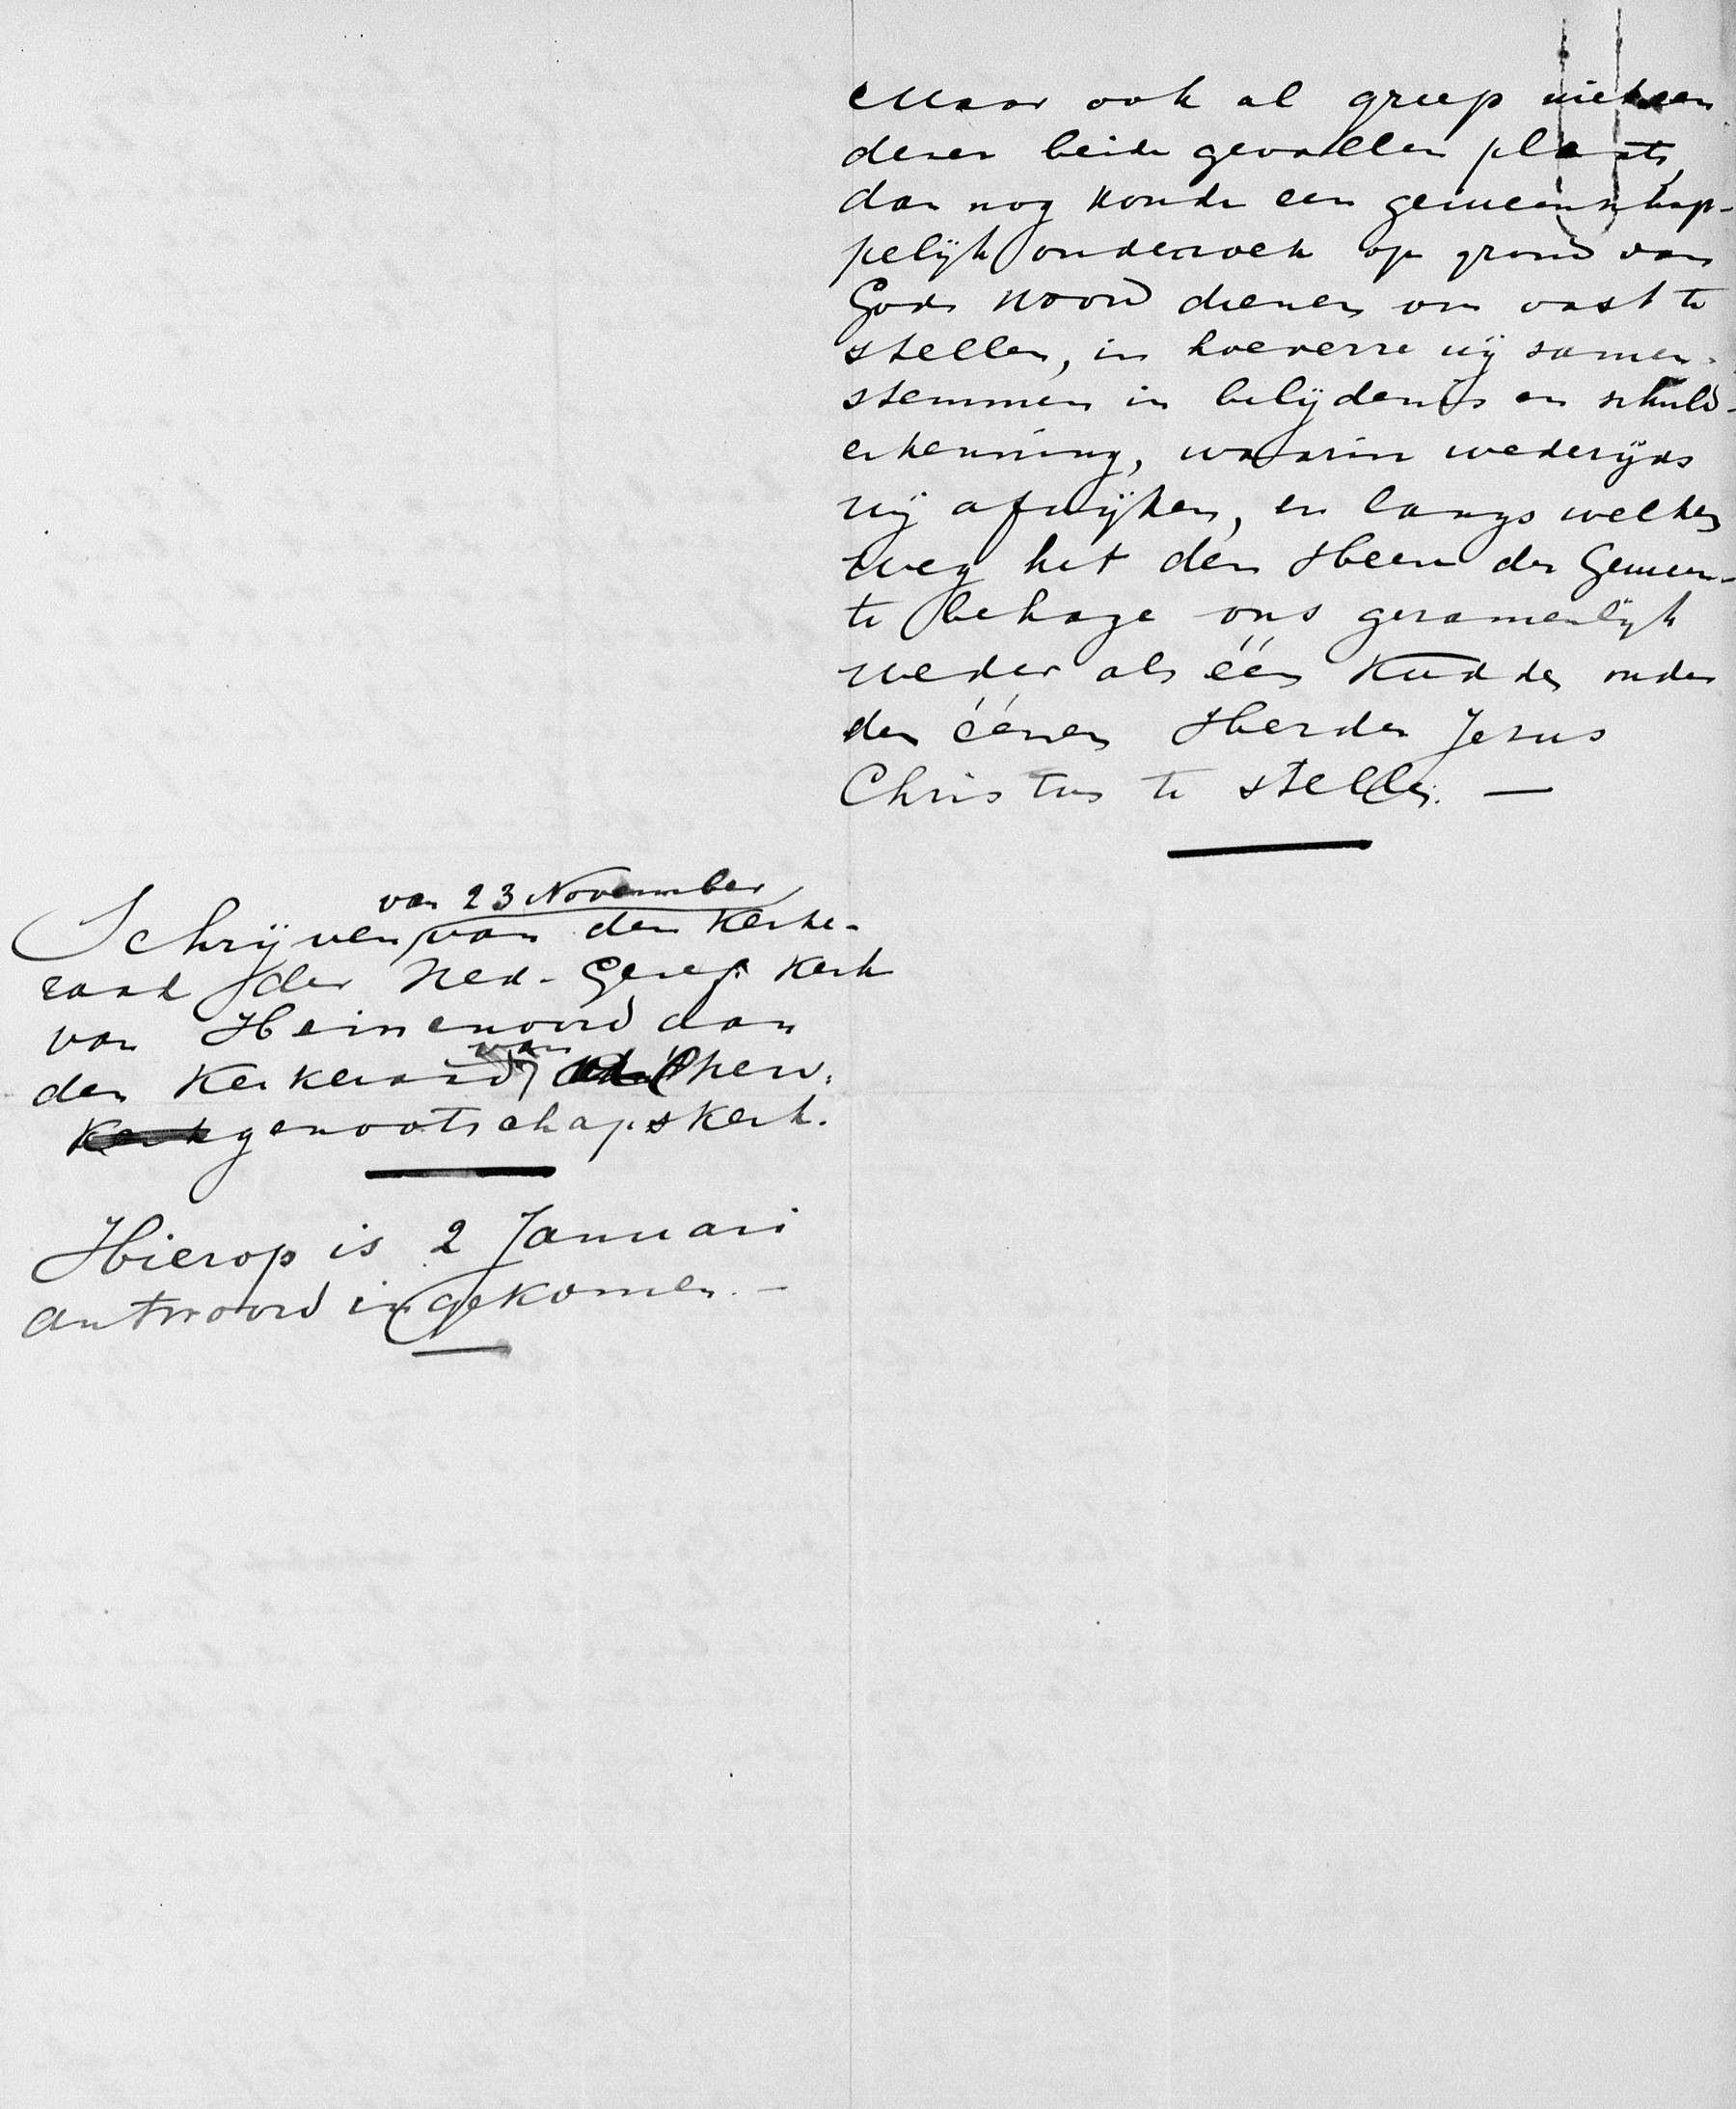 Maar ook al greep niet een
dezer beide gevallen plaats,
dan nog konde een gemeenschap-
pelijk onderzoek op grond van
Gods woord dienen om vast te
stellen, in hoeverre wij samen-
stemmen in belijdenis en schuld-
erkenning, waarin wederzijds
wij afwijken, en langs welken
weg het den Heere der Gemeen-
te behage ons gezamenlijk
weder als één kudde onder
den éénen Herder Jesus
Christus te stellen. —
van 23 November
Schrijven van den Kerke-
raad der Ned. Geref. Kerk
van Heinenoord aan
den Kerkeraad van de herv.
Kerkgenootschapskerk.
Hierop is 2 Januari
antwoord ingekomen. —